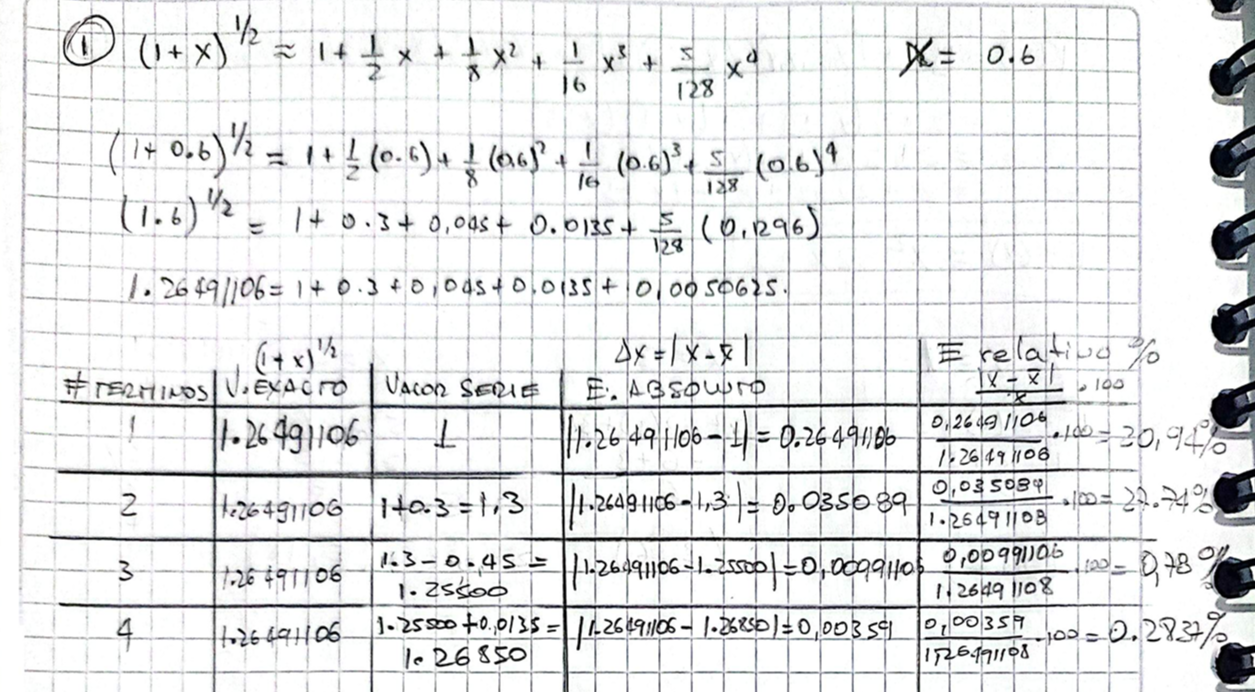 ① (1+x)^1/2 ≈ 1 + 1/2 x + 1/8 x² + 1/16 x³ + 5/128 x⁴ x = 0.6
(1+0.6)^1/2 = 1 + 1/2 (0.6) + 1/8 (0.6)² + 1/16 (0.6)³ + 5/128 (0.6)⁴
(1.6)^1/2 = 1 + 0.3 + 0,045 + 0.0135 + 5/128 (0,1296)
1.26491106 = 1 + 0.3 + 0,045 + 0,0135 + 0,0050625.
(1+x)^1/2 Δx = |x - x̄| E relativo %
# TERMINOS V. EXACTO VALOR SERIE E. ABSOLUTO |x - x̄|/x . 100
1 1.26491106 1 |1.26491106 - 1| = 0.26491106 0,26491106/1.26491106 .100 = 20,94%
2 1.26491106 1+0.3 = 1,3 |1.26491106 - 1,3| = 0.035089 0,035089/1.26491108 .100 = 27.74%
3 1.26491106 1.3 - 0.45 = 1.25500 |1.26491106 - 1.25500| = 0,00991106 0,00991106/1.26491108 .100 = 0,78%
4 1.26491106 1.25500 + 0,0135 = 1.26850 |1.26491106 - 1.26850| = 0,00359 0,00359/1,26491108 .100 = 0.2837%